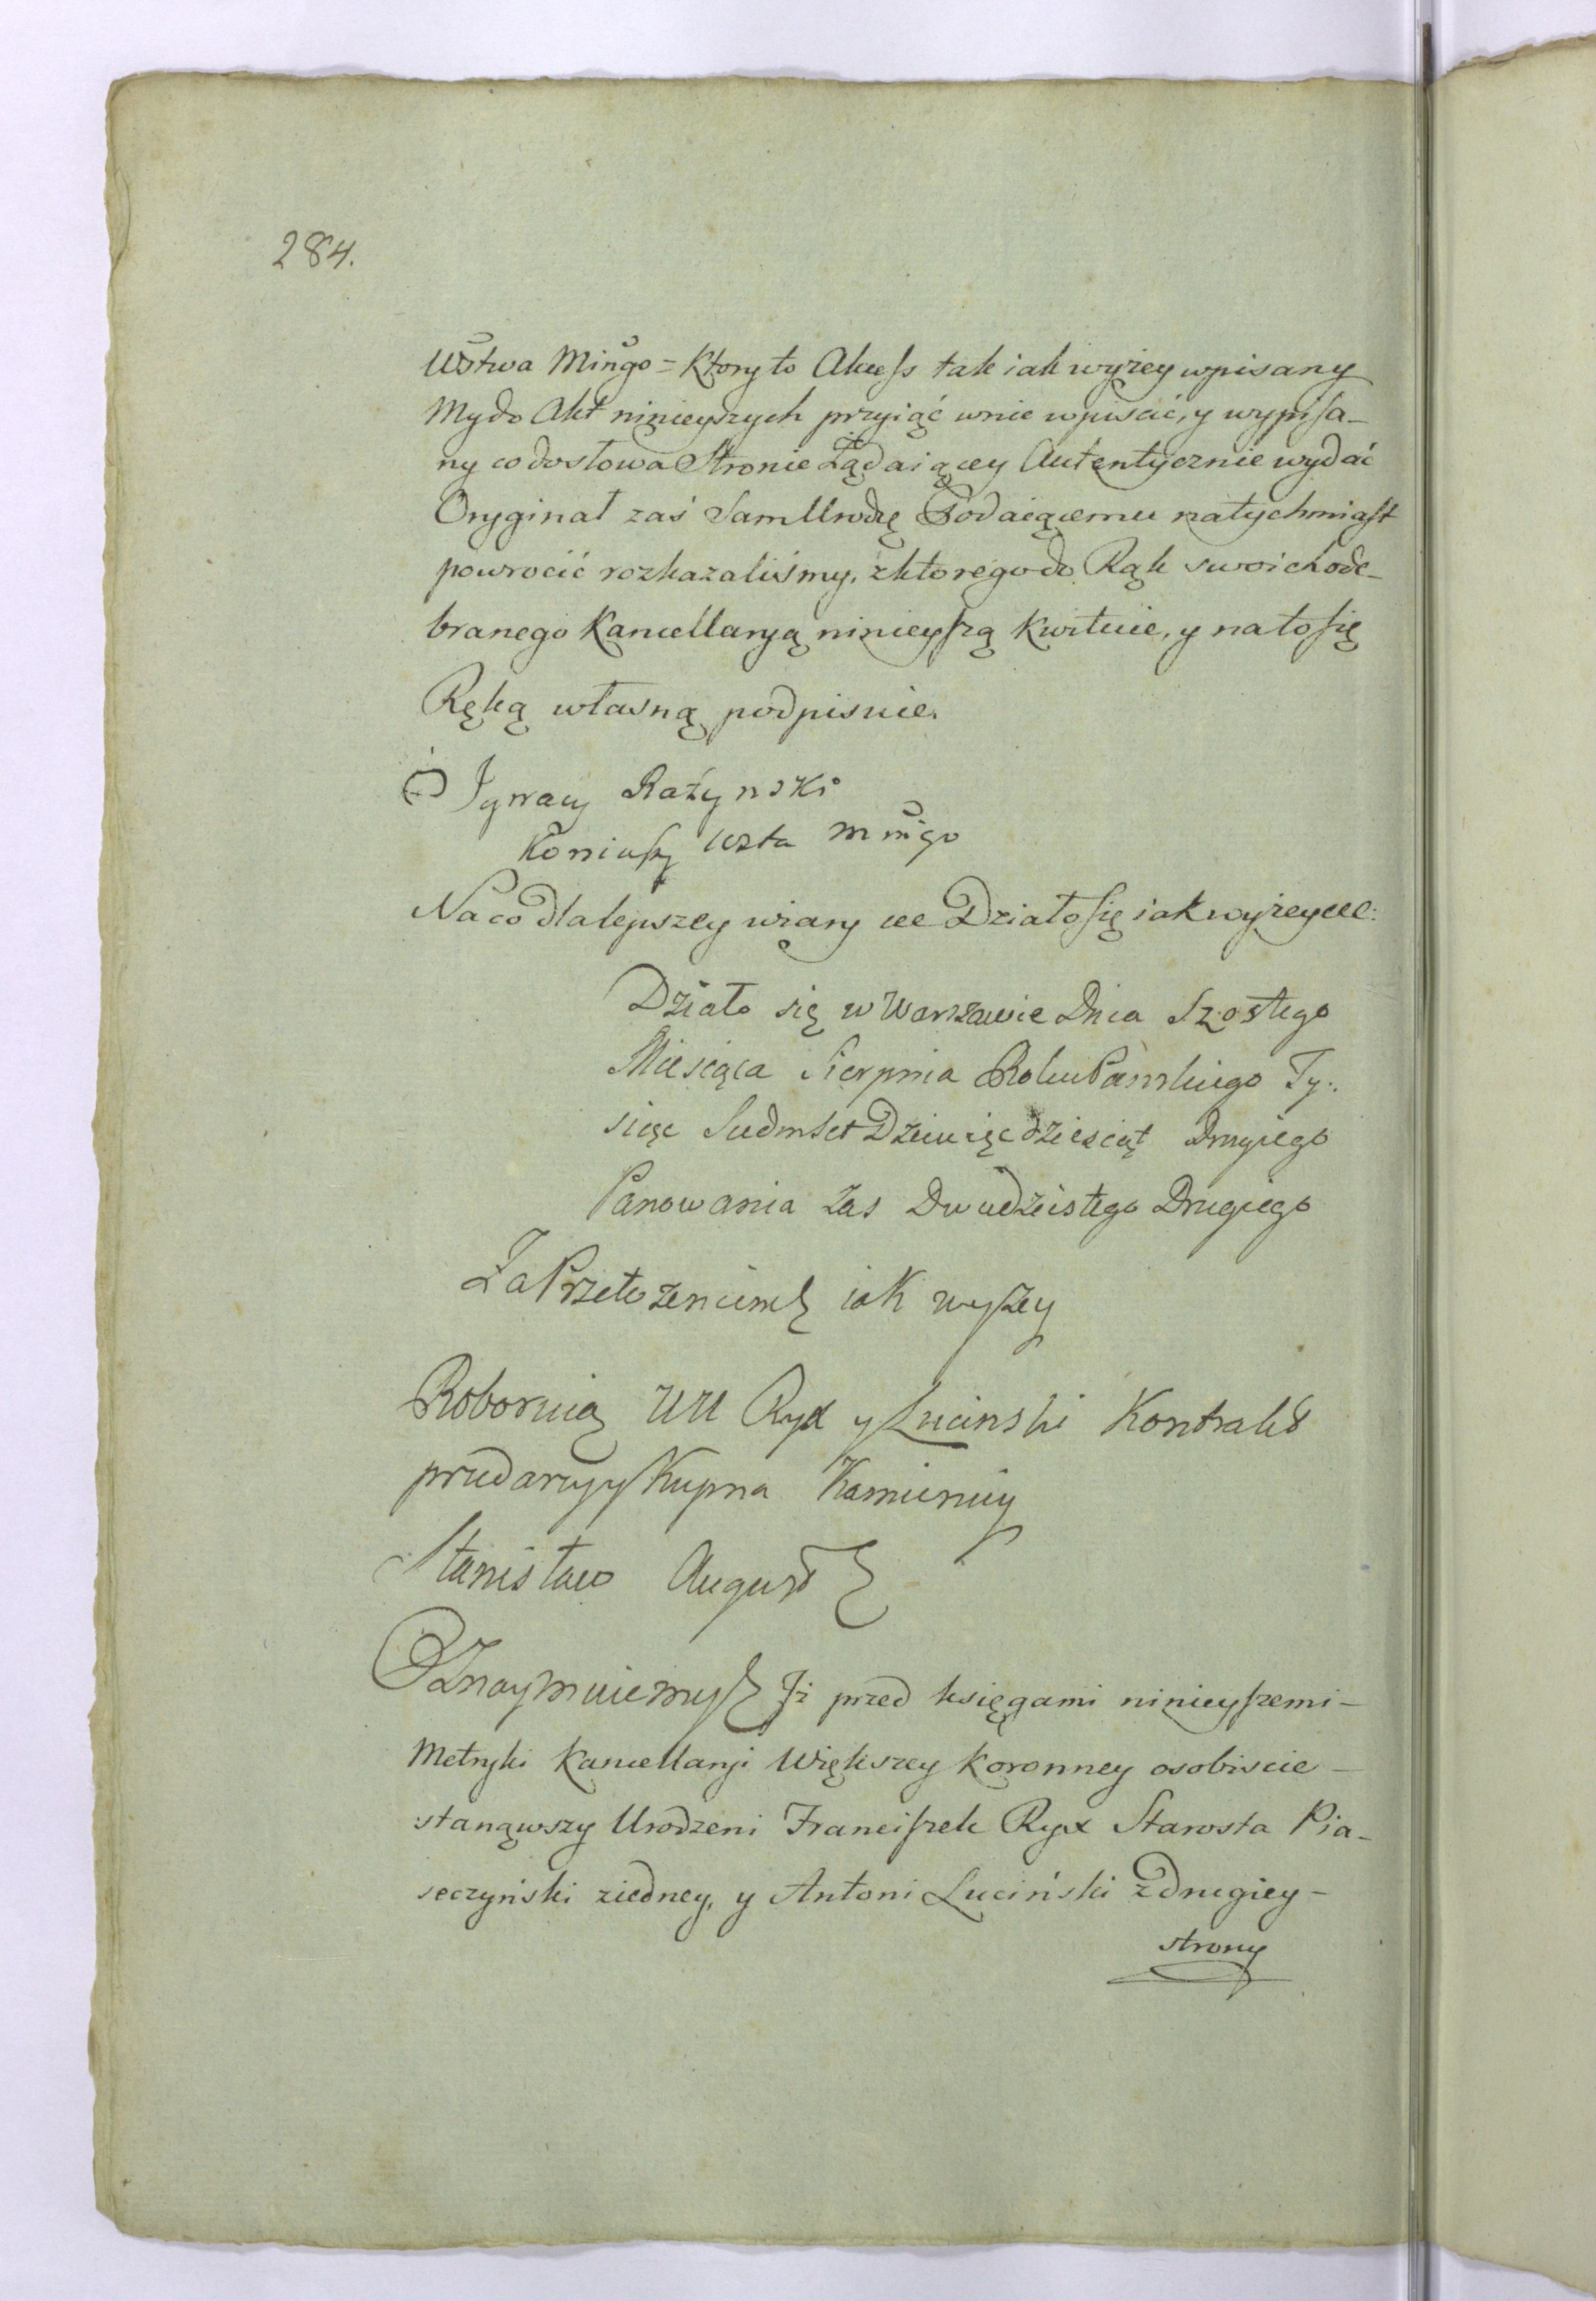 284.
Wstwa Mingo = Ktory to Akcess tak iak wyżey wpisany
My do Akt ninieyszych przyiąć wnie wpisać, y wypisa-
ny co do słowa Stronie Żądaiącey Autentycznie wydać
Oryginał zaś Sam Urodze Podaiącemu natychmiast
powrocić rozkazaliśmy, z ktorego do Rąk swoich ode-
branego Kancellaryą ninieyszą kwituie, y na to się
Ręką własną podpisuie.
Ignacy Rażynski
Koniuszy Wztа mnigo
Na co dla lepszey wiary ec Działo się iak wyżey ece:
Działo się w Warszawie Dnia Szostego
Miesiąca Sierpnia Roku Panskiego Ty:
siąc Siedmset Dziewięcdziesiąt Drugiego
Panowania Zas Dwudziestego Drugiego
Za Przełożeniem iak wyszey
Roboruią UU Ryx y Lucinski Kontrakt
przedarzy y Kupna Kamienicy
Stanisław August
Oznaymuiemy Iż przed księgami ninieyszemi -
Metryki Kancellaryi Większey Koronney osobiscie -
stanąwszy Urodzeni Franciszek Ryx Starosta Pia-
seczyński z iedney, y Antoni Luciński z drugiey -
strony